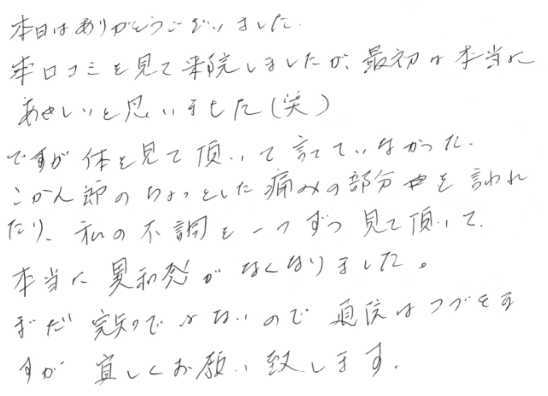 本日はありがとうございました.
口コミを見て来院しましたが、最初は本当に
あやしいと思いました(笑)
ですが体を見て頂いて言てていなかった.
こかん節のちょっとした痛みの部分を言われ
たり、私の不調を一つずつ見て頂いて、
本当に異和感がなくなりました。
まだ完知ではないので通信はつづきま
すが宜しくお願い致します.